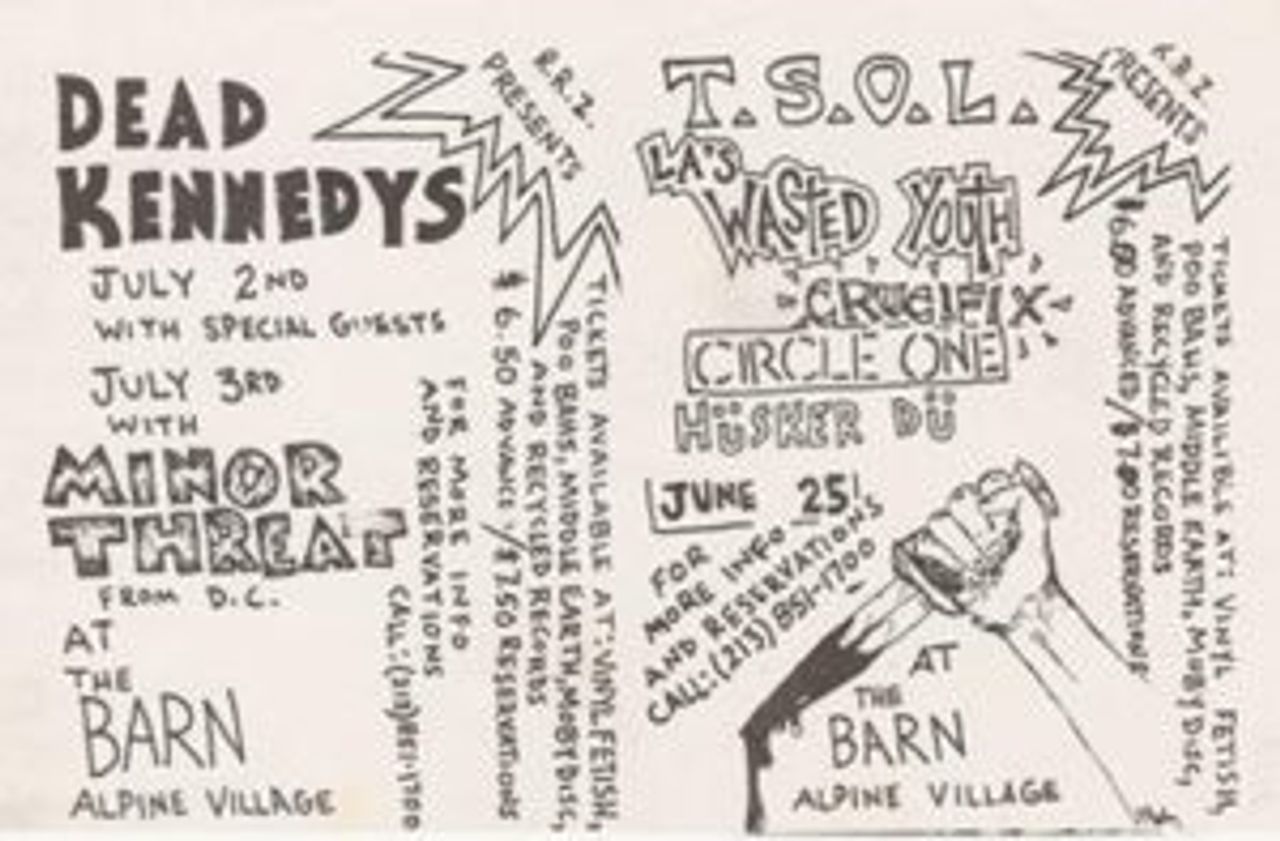 DEAD
KENNEDYS
JULY 2ND
WITH SPECIAL GUESTS
JULY 3RD
WITH
MINOR
THREAT
FROM D.C.
AT
THE
BARN
ALPINE VILLAGE
R.R.Z.
PRESENTS
TICKETS AVAILABLE AT: VINYL FETISH,
POO BAHS, MIDDLE EARTH, MOBY DISC,
AND RECYCLED RECORDS
$6.50 ADVANCE / $7.50 RESERVATIONS
FOR MORE INFO
AND RESERVATIONS
CALL: (213) 851-1700
T.S.O.L.
LA'S
WASTED YOUTH
CRUCIFIX
CIRCLE ONE
HÜSKER DÜ
JUNE 25!
FOR
MORE INFO
AND RESERVATIONS
CALL: (213) 851-1700
AT
THE
BARN
ALPINE VILLAGE
PRESENTS
TICKETS AVAILIBLE AT: VINYL FETISH,
POO BAHS, MIDDLE EARTH, MOBY DISC,
AND RECYCLED RECORDS
$6.00 ADVANCED / $7.00 RESERVATIONS